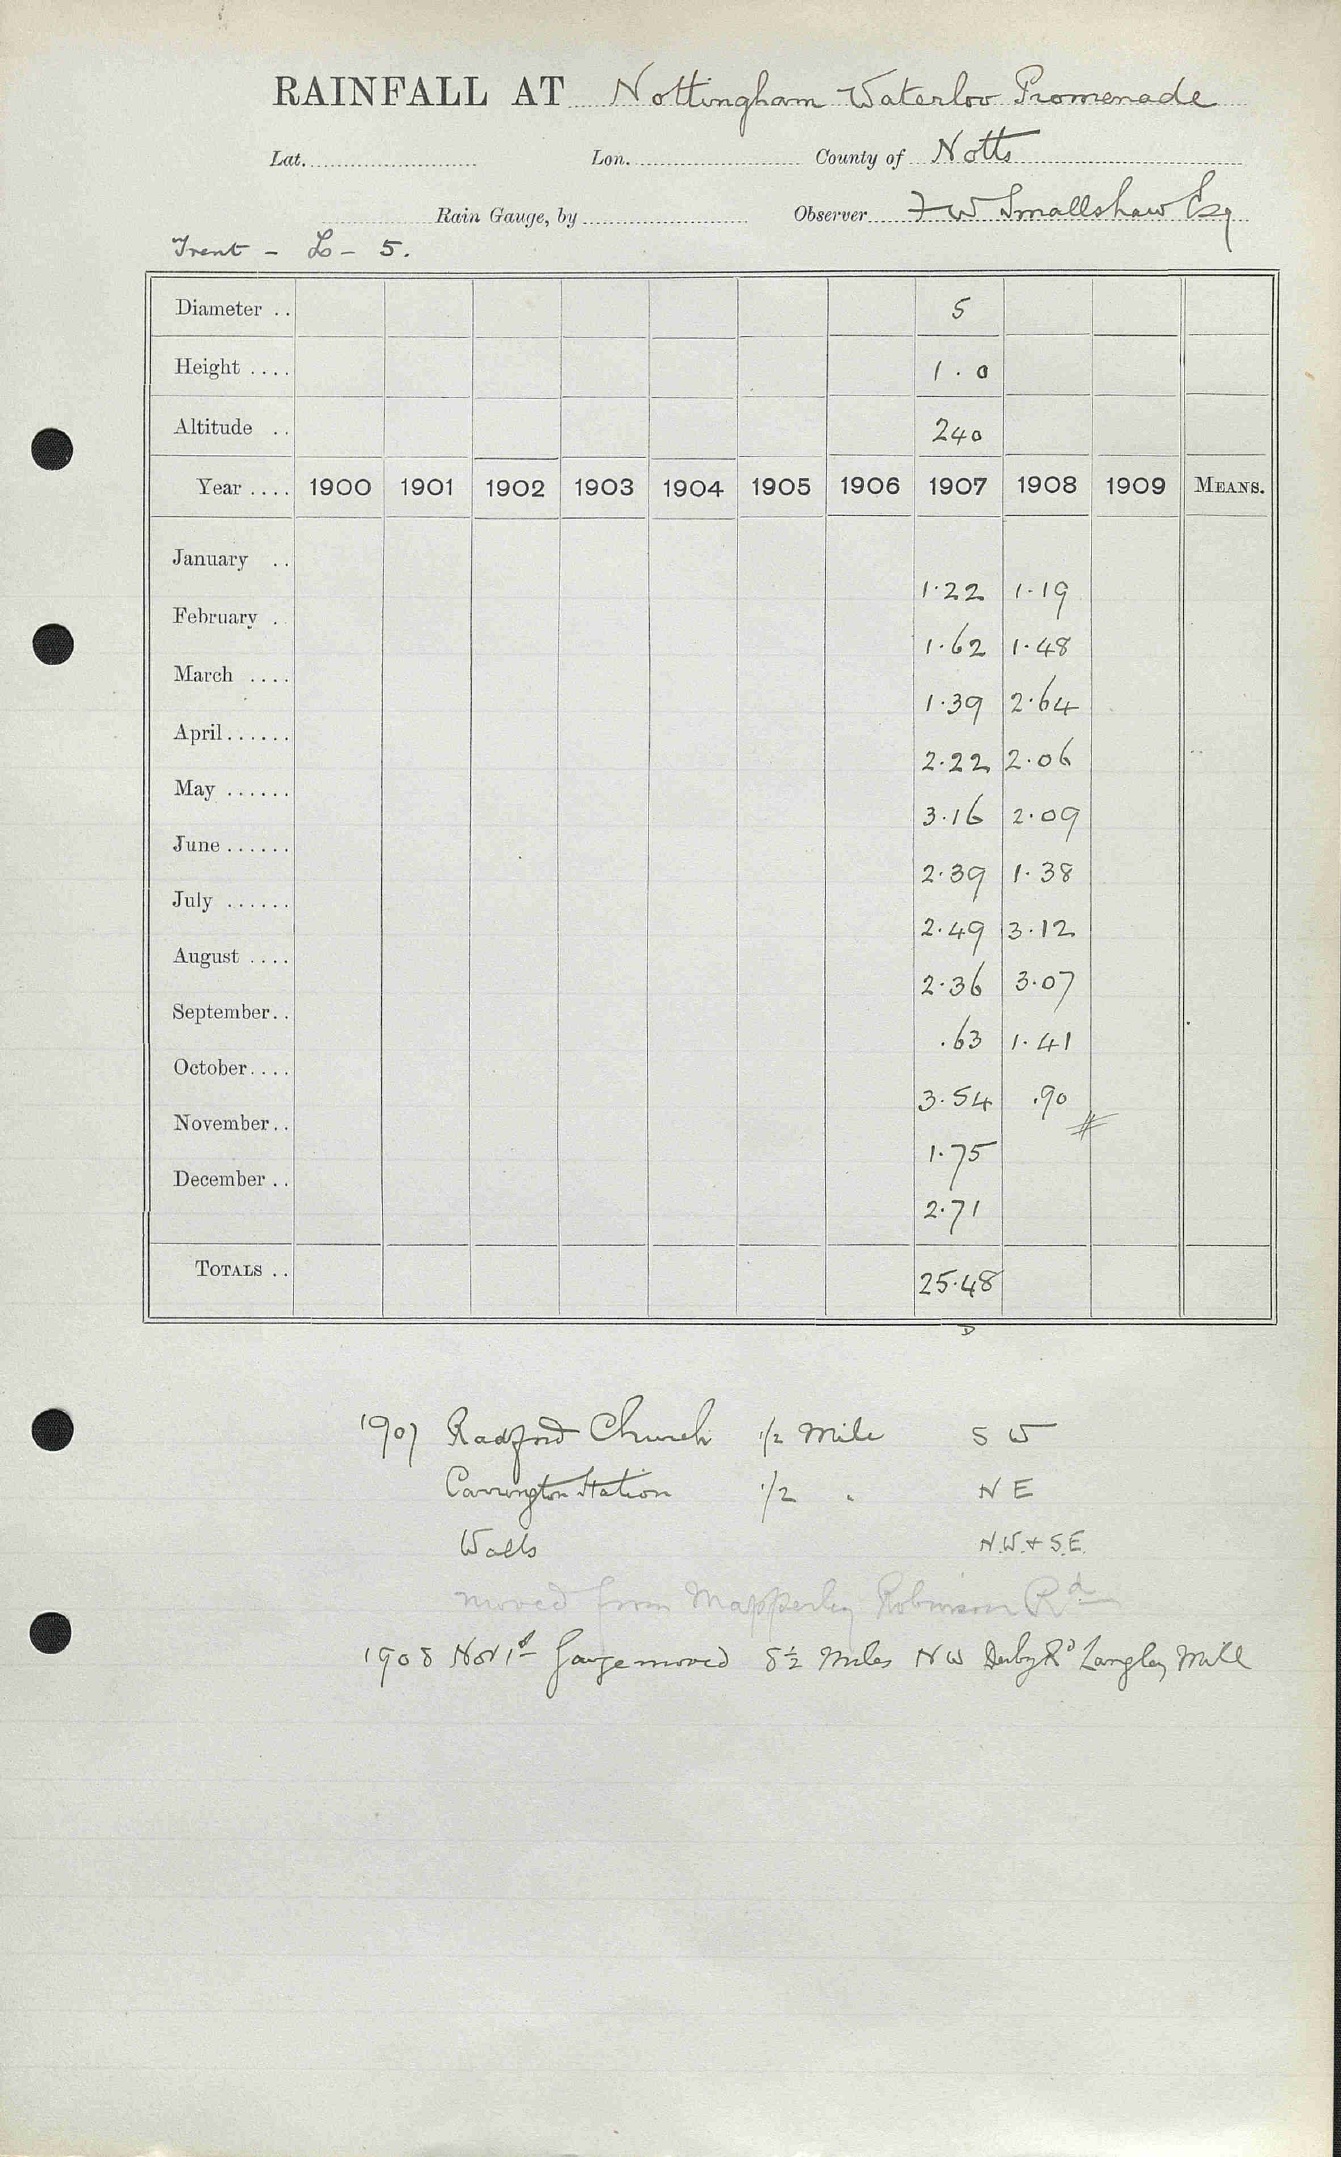 RAINFALL AT Nottingham Waterloo Promenade
Lat. Lon. County of Notts
Rain Gauge, by Observer F W Smallshaw Esq
Trent - L - 5.
Diameter .. 5
Height .... 1.0
Altitude .. 240
Year .... 1900 1901 1902 1903 1904 1905 1906 1907 1908 1909 MEANS.
January .. 1.22 1.19
February . 1.62 1.48
March .... 1.39 2.64
April...... 2.22 2.06
May ...... 3.16 2.09
June ...... 2.39 1.38
July ...... 2.49 3.12
August .... 2.36 3.07
September.. .63 1.41
October.... 3.54 .90
November.. 1.75
December .. 2.71
TOTALS .. 25.48
D
1907 Radford Church 1/2 Mile S W
Carrington Station 1/2 " N E
Walls N.W. + S.E.
moved from Mapperley Robinson Rd
1908 Nov 1st Gauge moved 8½ Miles NW Derby Rd Langley Mill